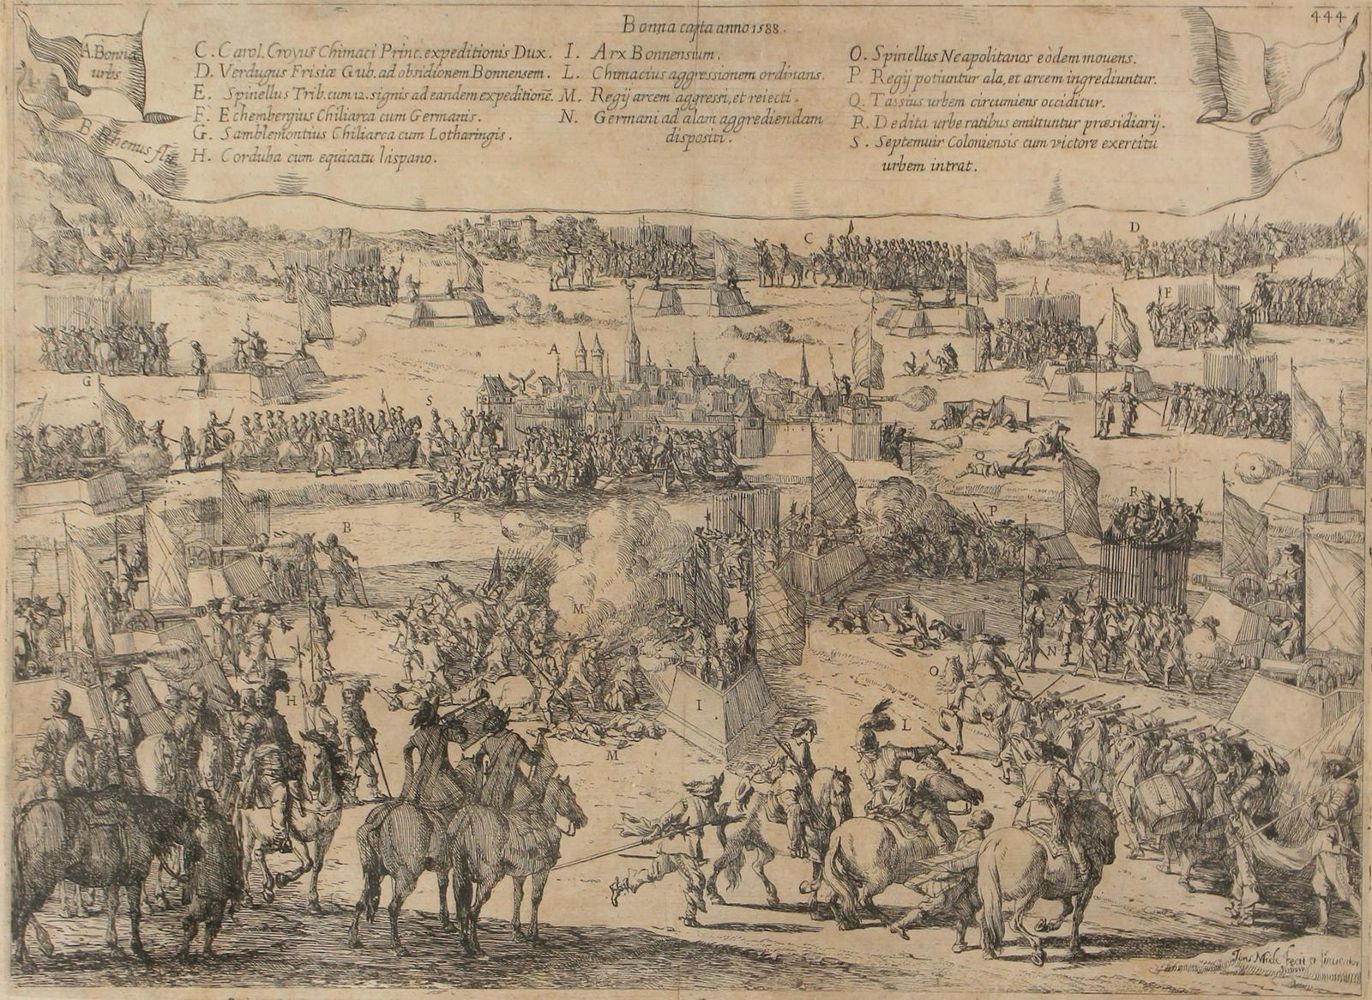 444
Bonna capta anno 1588.
A. Bonna
urbs
B. Rhenus flu
C. Carol. Croyus Chimaci Princ. expeditionis Dux.
D. Verdugus Frisiæ Gub. ad obsidionem Bonnensem.
E. Spinellus Trib. cum 12. signis ad eandem expeditionē.
F. Echembergius Chiliarca cum Germanis.
G. Samblemontius Chiliarca cum Lotharingis.
H. Corduba cum equitatu hispano.
I. Arx Bonnensium.
L. Chimacius aggressionem ordinans.
M. Regij arcem aggressi, et reiecti.
N. Germani ad alam aggrediendam
dispositi.
O. Spinellus Neapolitanos eòdem mouens.
P. Regij potiuntur ala, et arcem ingrediuntur.
Q. Tassius urbem circumiens occiditur.
R. Dedita urbe ratibus emittuntur præsidiarij.
S. Septemuir Coloniensis cum victore exercitu
urbem intrat.
C
D
F
A
G
S
Q
R
R
P
B
M
N
O
H
I
L
M